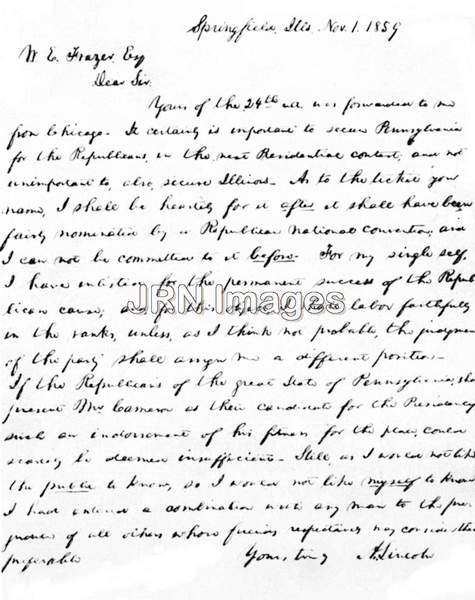 Springfield, Ills. Nov. 1. 1859
W. E. Frazer, Esq
Dear Sir:
Yours of the 24th ult. was forwarded to me
from Chicago. It certainly is important to secure Pennsylvania
for the Republicans, in the next Presidential contest; and not
unimportant to, also, secure Illinois. As to the ticket you
name, I shall be heartily for it, after it shall have been
fairly nominated by a Republican National convention; and
I can not be committed to it before. For my single self,
I have enlisted for the permanent success of the Repub-
lican cause; and for this object, I shall labor faithfully
in the ranks, unless, as I think not probable, the judgment
of the party shall assign me a different position.
If the Republicans of the great State of Pennsylvania, shall
present Mr. Cameron as their candidate for the Presidency,
such an indorsement of his fitness for the place, could
scarcely be deemed insufficient. Still, as I would not like
the public to know, so I would not like myself to know
I had entered a combination with any man, to the prej-
udice of all others whose friends respectively may consider them
preferable
Yours truly A. Lincoln
JRN Images